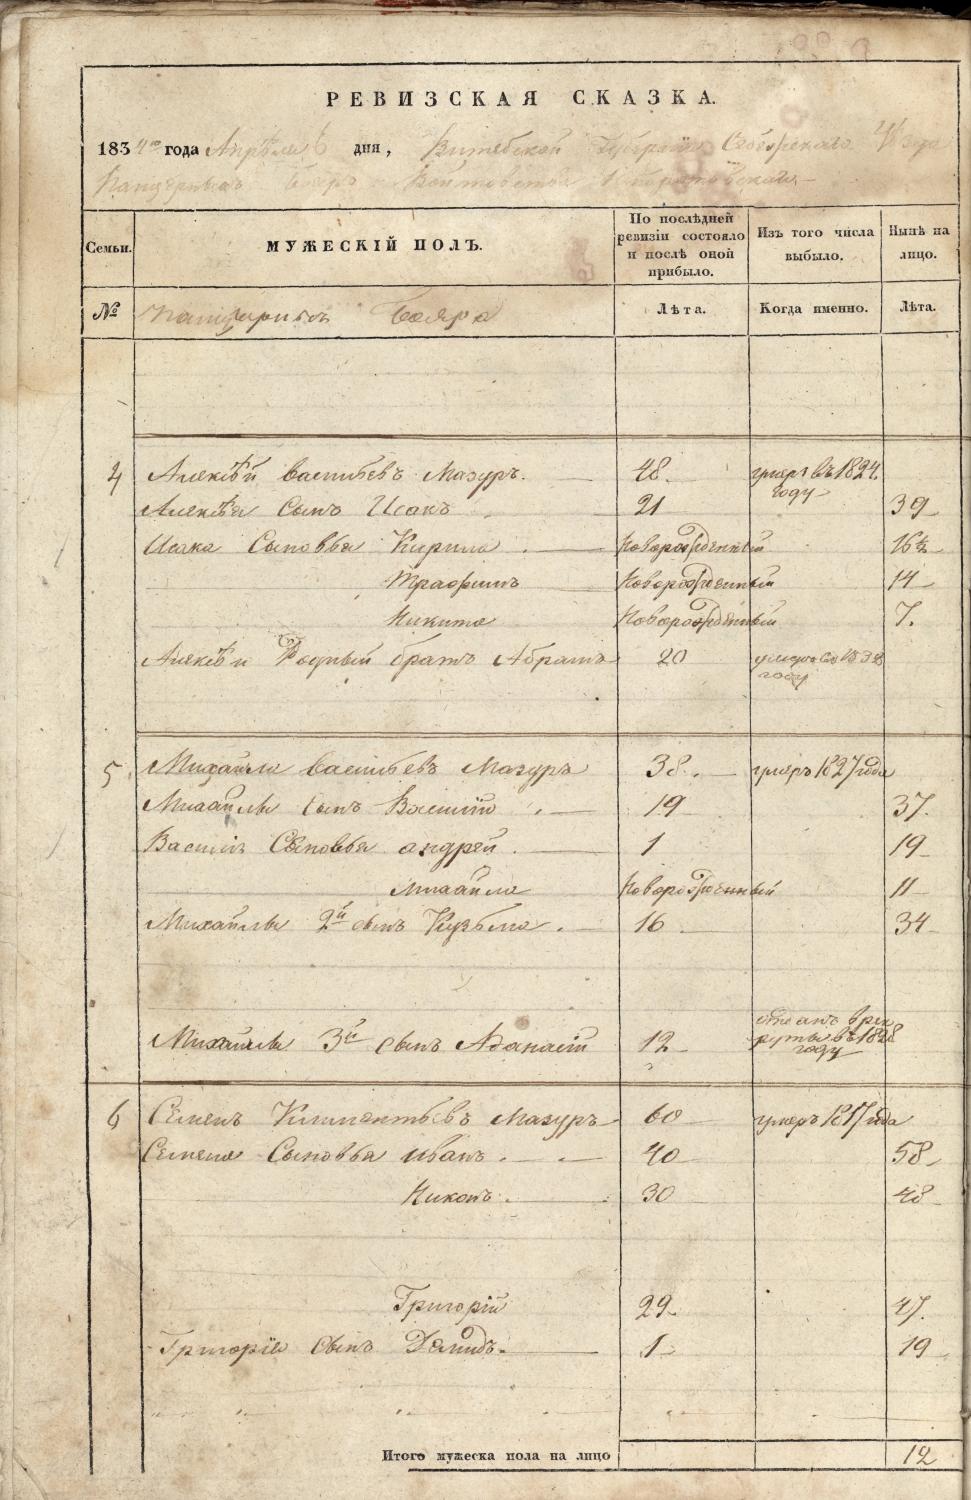 РЕВИЗСКАЯ СКАЗКА.
1834го года Апреля 6 дня, Витебской Губернии Себежскаго Уезда
Панцерныхъ Бояръ Войтовства
Семьи. МУЖЕСКІЙ ПОЛЪ. По послѣдней ревизіи состояло и послѣ оной прибыло. Изъ того числа выбыло. Нынѣ на лицо.
№ Панцерныхъ Бояръ Лѣта. Когда именно. Лѣта.
4 Алексѣй васильевъ Мазуръ. 48. умеръ въ 1824. году
Алексѣя Сынъ Исакъ 21 39
Исака Сыновья Кирила Новорожденный 16½
Трафимъ Новорожденный 14
Никита Новорожденный 7.
Алексѣя Родный братъ Абрамъ 20 умеръ въ году
5 Михайла васильевъ Мазуръ 38. умеръ 1827 года
Михайлы сынъ Василій 19 37.
Василія Сыновья андрей 1 19
Михайла Новорожденный 11
Михайлы 2й сынъ Кузьма 16 34
Михайлы 3й сынъ Афанасій 12 отданъ в рекруты въ 1828 году
6 Семенъ Климентьевъ Мазуръ 60 умеръ 1817 года
Семена Сыновья иванъ 40 58
Никонъ 30 48
Григорій 29 47.
Григорія сынъ Демидъ 1 19
Итого мужеска пола на лицо 12